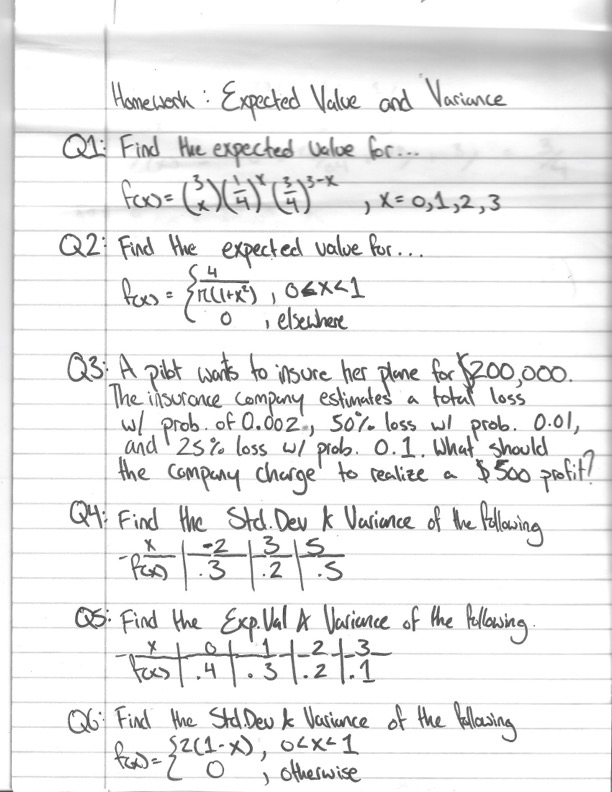 Homework: Expected Value and Variance
Q1: Find the expected value for...
f(x) = (3 x)(1/4)^x (3/4)^3-x , x = 0,1,2,3
Q2: Find the expected value for...
f(x) = { 4/π(1+x²) , 0<x<1
0 , elsewhere
Q3: A pilot wants to insure her plane for $200,000.
The insurance company estimates a total loss
w/ prob. of 0.002, 50% loss w/ prob. 0.01,
and 25% loss w/ prob. 0.1. What should
the company charge to realize a $500 profit?
Q4: Find the Std. Dev & Variance of the following
x | -2 | 3 | 5
f(x) | .3 | .2 | .5
Q5: Find the Exp. Val & Variance of the following.
x | 0 | 1 | 2 | 3
f(x) | .4 | .3 | .2 | .1
Q6: Find the Std. Dev & Variance of the following
f(x) = { 2(1-x) , 0<x<1
0 , otherwise